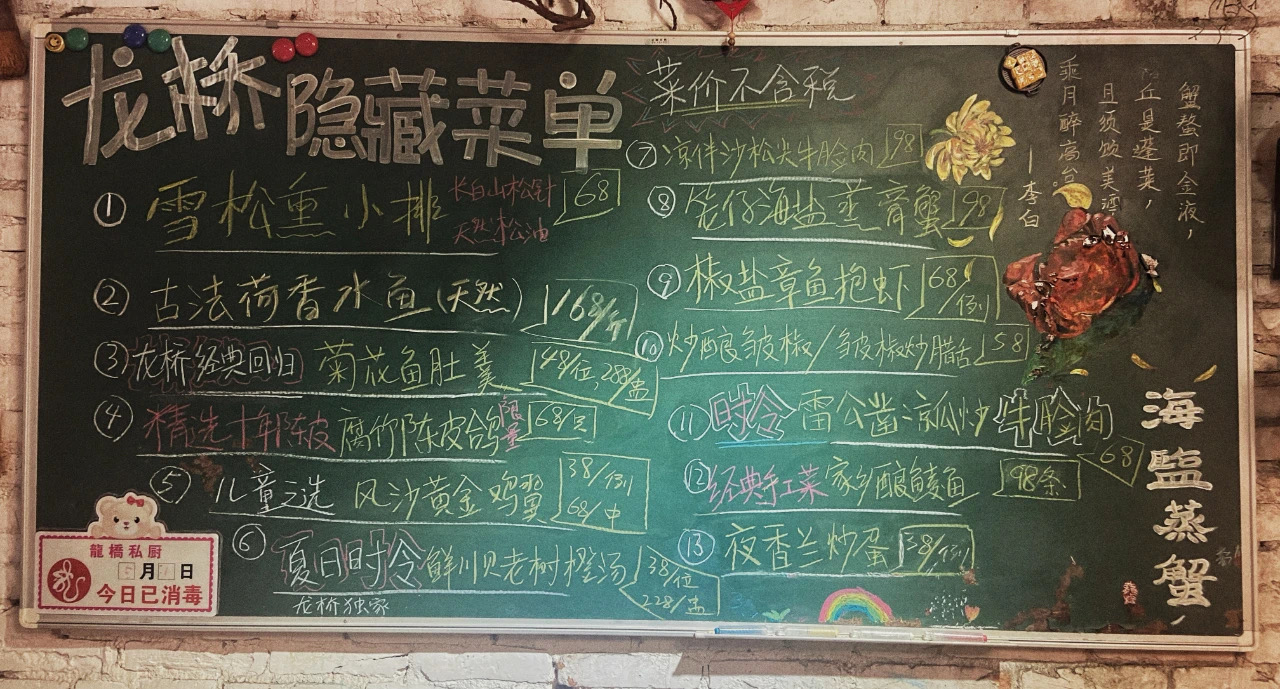 龙桥隐藏菜单
① 雪松熏小排 长白山松针 天然松油 68
② 古法荷香水鱼(天然) 168/斤
③ 龙桥经典回归 菊花鱼肚羹 48/位,288/盅
④ 精选十年陈皮 腐竹陈皮鸽 限量 68/只
⑤ 儿童之选 风沙黄金鸡翼 38/例 68/中
⑥ 夏日时令 鲜川贝老树橙汤 38/位 228/盅
龙桥独家
菜价不含税
⑦ 凉伴沙松尖牛脸肉 98
⑧ 笼仔海盐蒸膏蟹 198
⑨ 椒盐章鱼抱虾 68/例
⑩ 炒酿皱椒/皱皮椒炒腊舌 58
⑪ 时令 雷公凿凉瓜炒牛脸肉 68
⑫ 经典手工菜 家乡酿鲮鱼 98条
⑬ 夜香兰炒蛋 38/例
蟹螯即金液,
丘是蓬莱,
且须饮美酒
乘月醉高台
—李白
海盐蒸蟹
龍橋私厨
月 日
今日已消毒